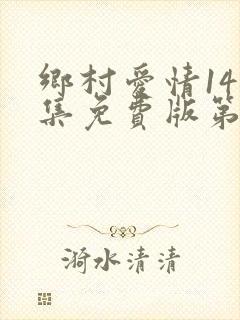 鄉村愛情14
集免費版第
漪水清清